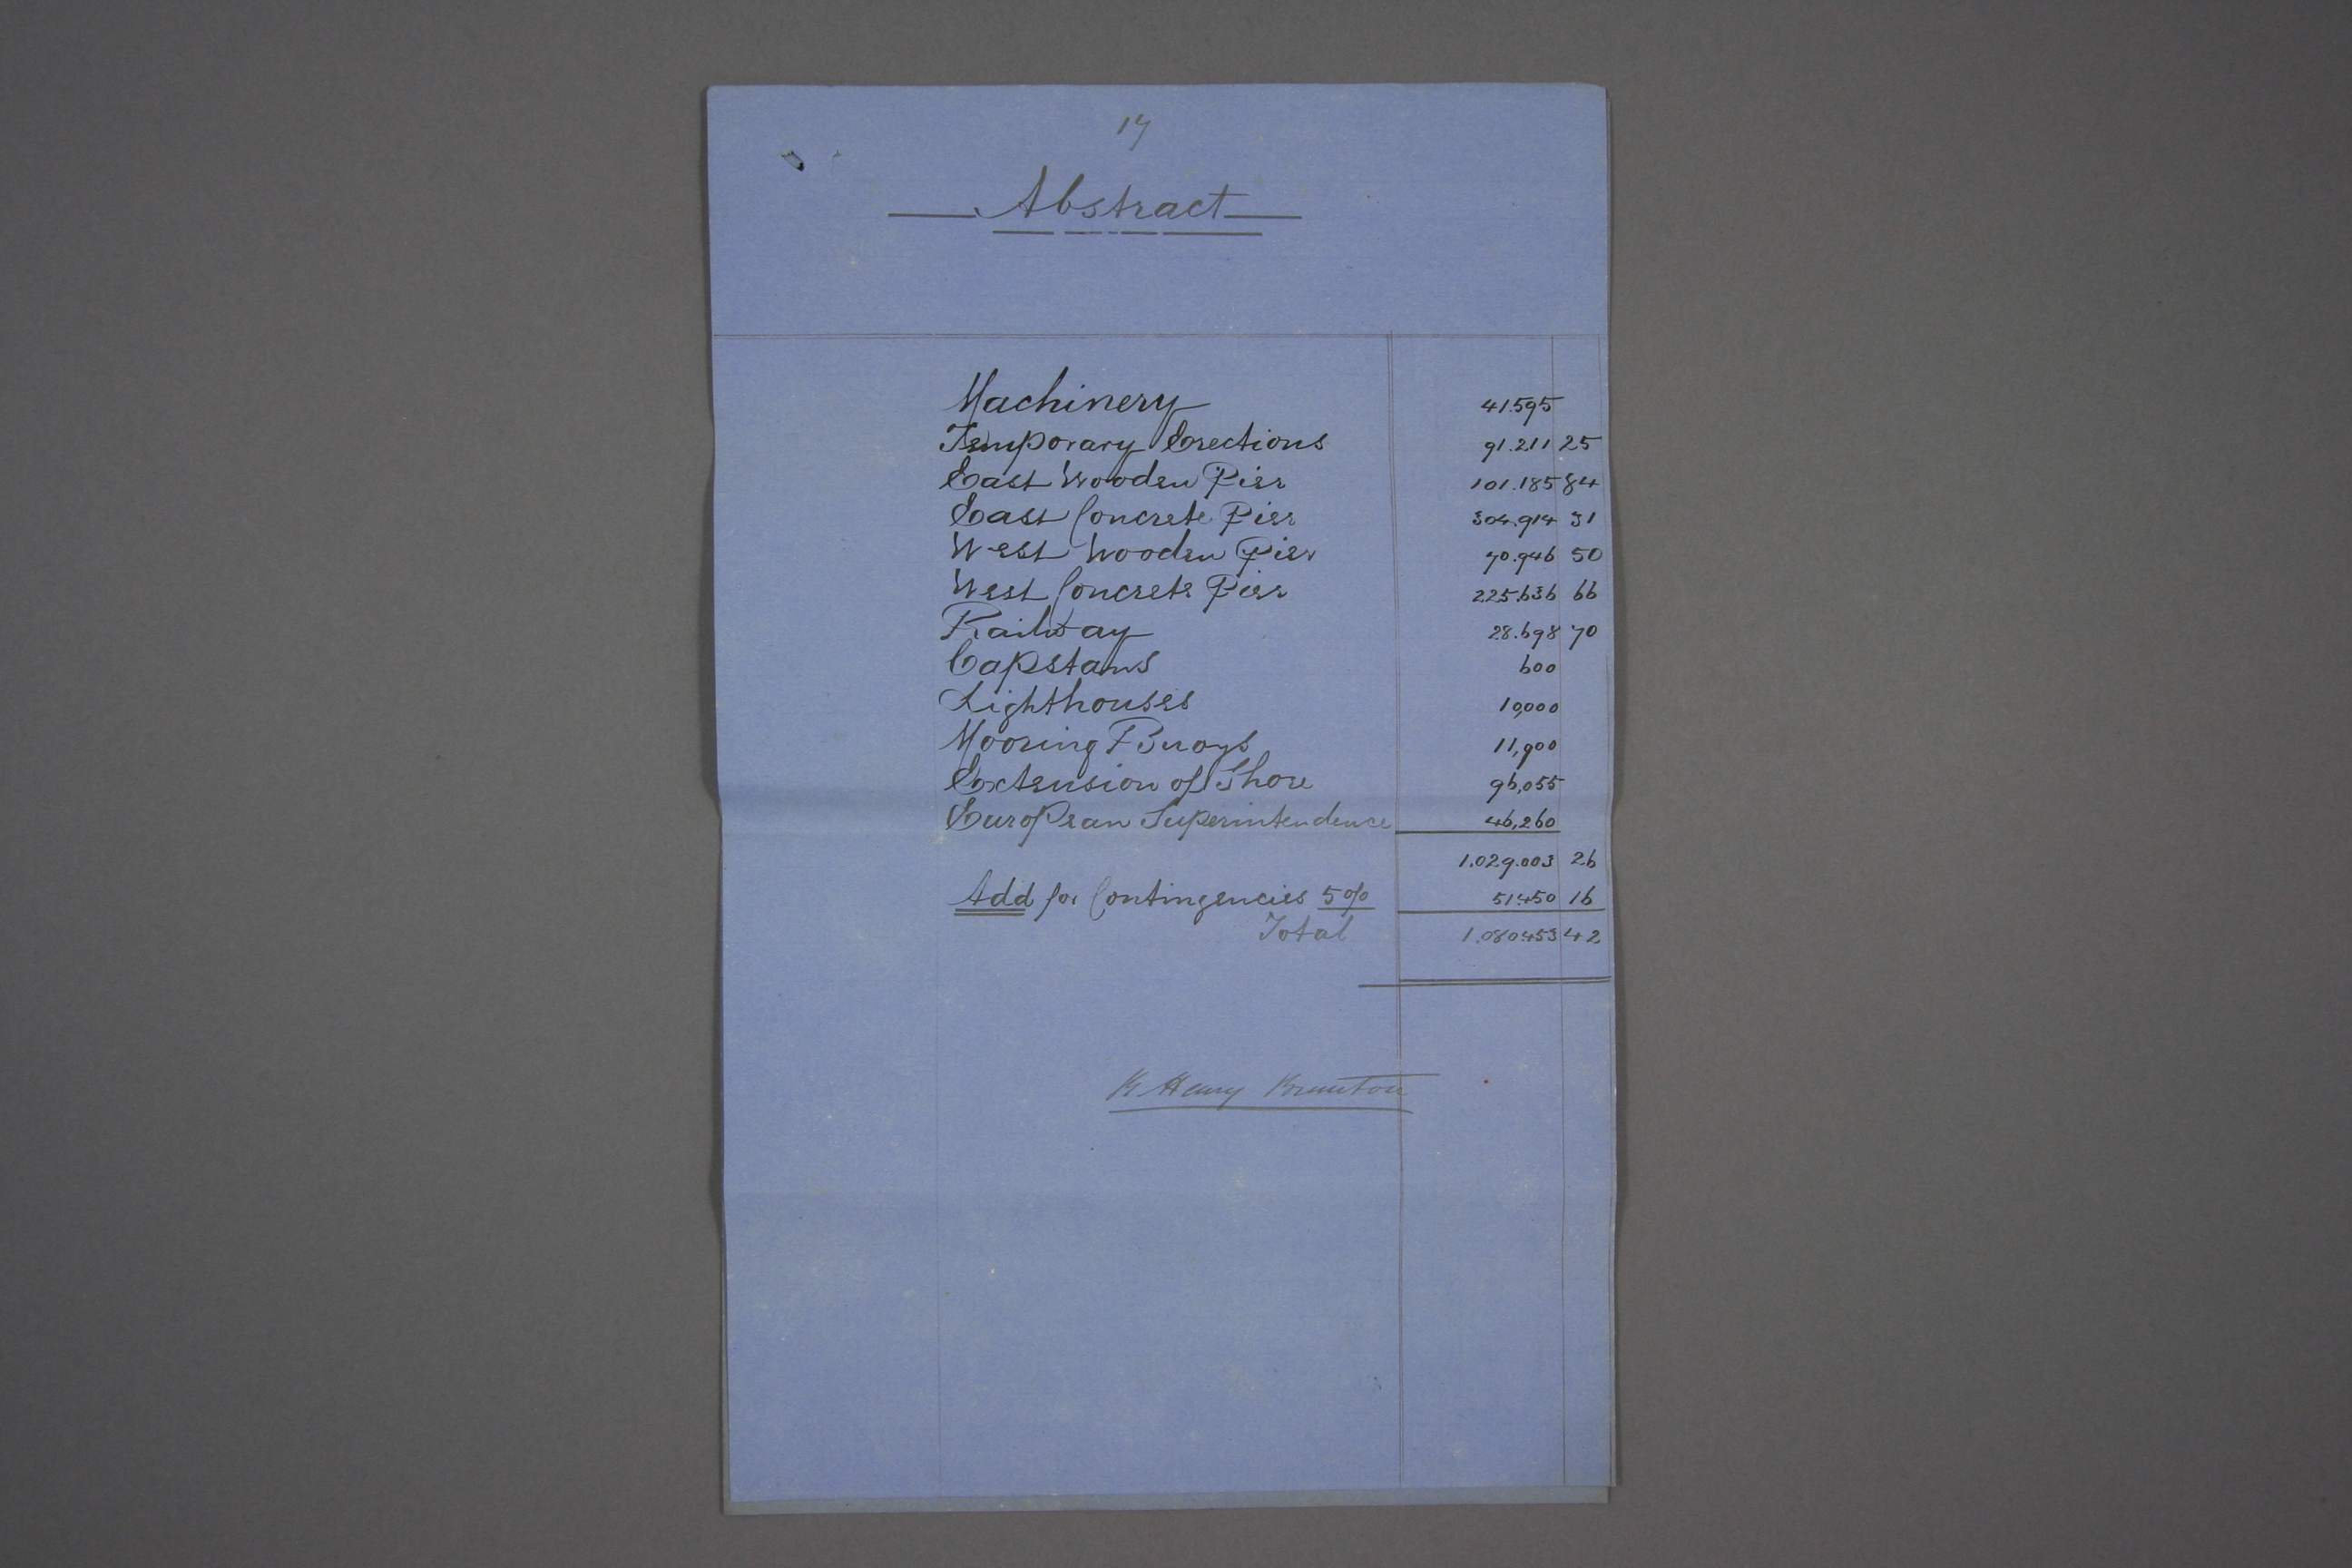 17
Abstract
Machinery 41.595
Temporary Erections 91.211 25
East Wooden Pier 101.185 84
East Concrete Pier 304.914 31
West Wooden Pier 70.946 50
West Concrete Pier 225.636 66
Railway 28.698 70
Capstans 600
Lighthouses 10,000
Mooring Buoys 11,900
Extension of Shore 96,055
European Superintendence 46,260
1.029.003 26
Add for Contingencies 5% 51.450 16
Total 1.080.453 42
R. Henry Brunton